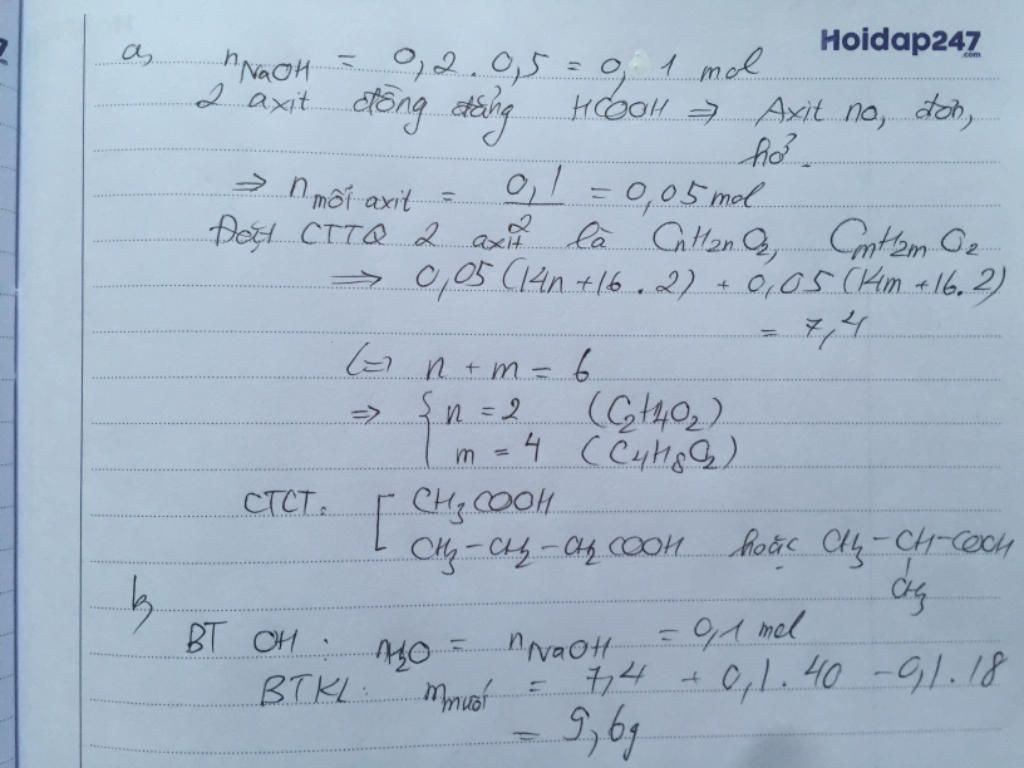 Hoidap247
.com
a, nNaOH = 0,2 . 0,5 = 0,1 mol
2 axit đồng đẳng HCOOH ⇒ Axit no, đơn,
hở.
⇒ n mỗi axit = 0,1/2 = 0,05 mol
Đặt CTTQ 2 axit là CnH2nO2, CmH2mO2
⇒ 0,05 (14n + 16 . 2) + 0,05 (14m + 16. 2)
= 7,4
(=) n + m = 6
⇒ { n = 2 (C2H4O2)
m = 4 (C4H8O2)
CTCT: [ CH3COOH
CH3-CH2-CH2COOH hoặc CH3-CH-COOH
CH3
b,
BT OH : nH2O = nNaOH = 0,1 mol
BTKL: m muối = 7,4 + 0,1. 40 - 0,1. 18
= 9,6g